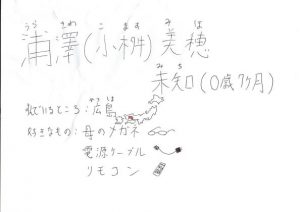 うら ざわ こ ます み ほ
浦澤(小桝)美穂
みち
未知(0歳7ヶ月)
いるところ:広島
好きなもの:母のメガネ
電源ケーブル
リモコン